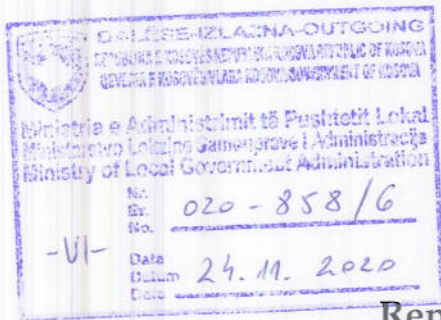 DALËSE-IZLAZNA-OUTGOING
REPUBLIKA E KOSOVËS/REPUBLIKA KOSOVA/REPUBLIC OF KOSOVA
QEVERIA E KOSOVËS/VLADA KOSOVA/GOVERNMENT OF KOSOVA
Ministria e Administrimit të Pushtetit Lokal
Ministarstvo Lokalne Samouprave i Administracije
Ministry of Local Government Administration
Nr.
Br.
No. 020-858/6
-VI-
Data
Datum 24.11.2020
Date
Rep